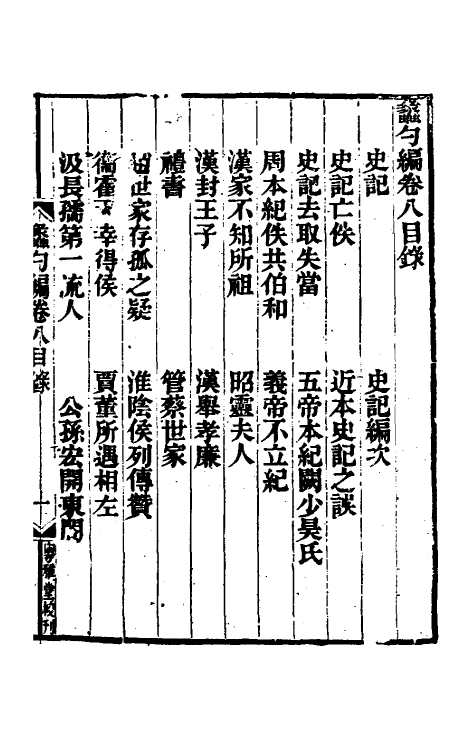 蠡勺編卷八目錄
史記　史記編次
史記亡佚　近本史記之誤
史記去取失當　五帝本紀闕少昊氏
周本紀佚共伯和　義帝不立紀
漢家不知所祖　昭靈夫人
漢封王子　漢舉孝廉
禮書　管蔡世家
世家存孤之疑　淮陰侯列傳贊
衞霍　幸得侯　賈董所遇相左
汲長孺第一流人　公孫宏開東閤
蠡勺編卷八目錄　一　粵雅堂校刊